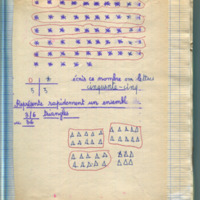 D | U
5 | 5
écris ce nombre en lettres
cinquante-cinq
Représente rapidement un ensemble
36 triangles